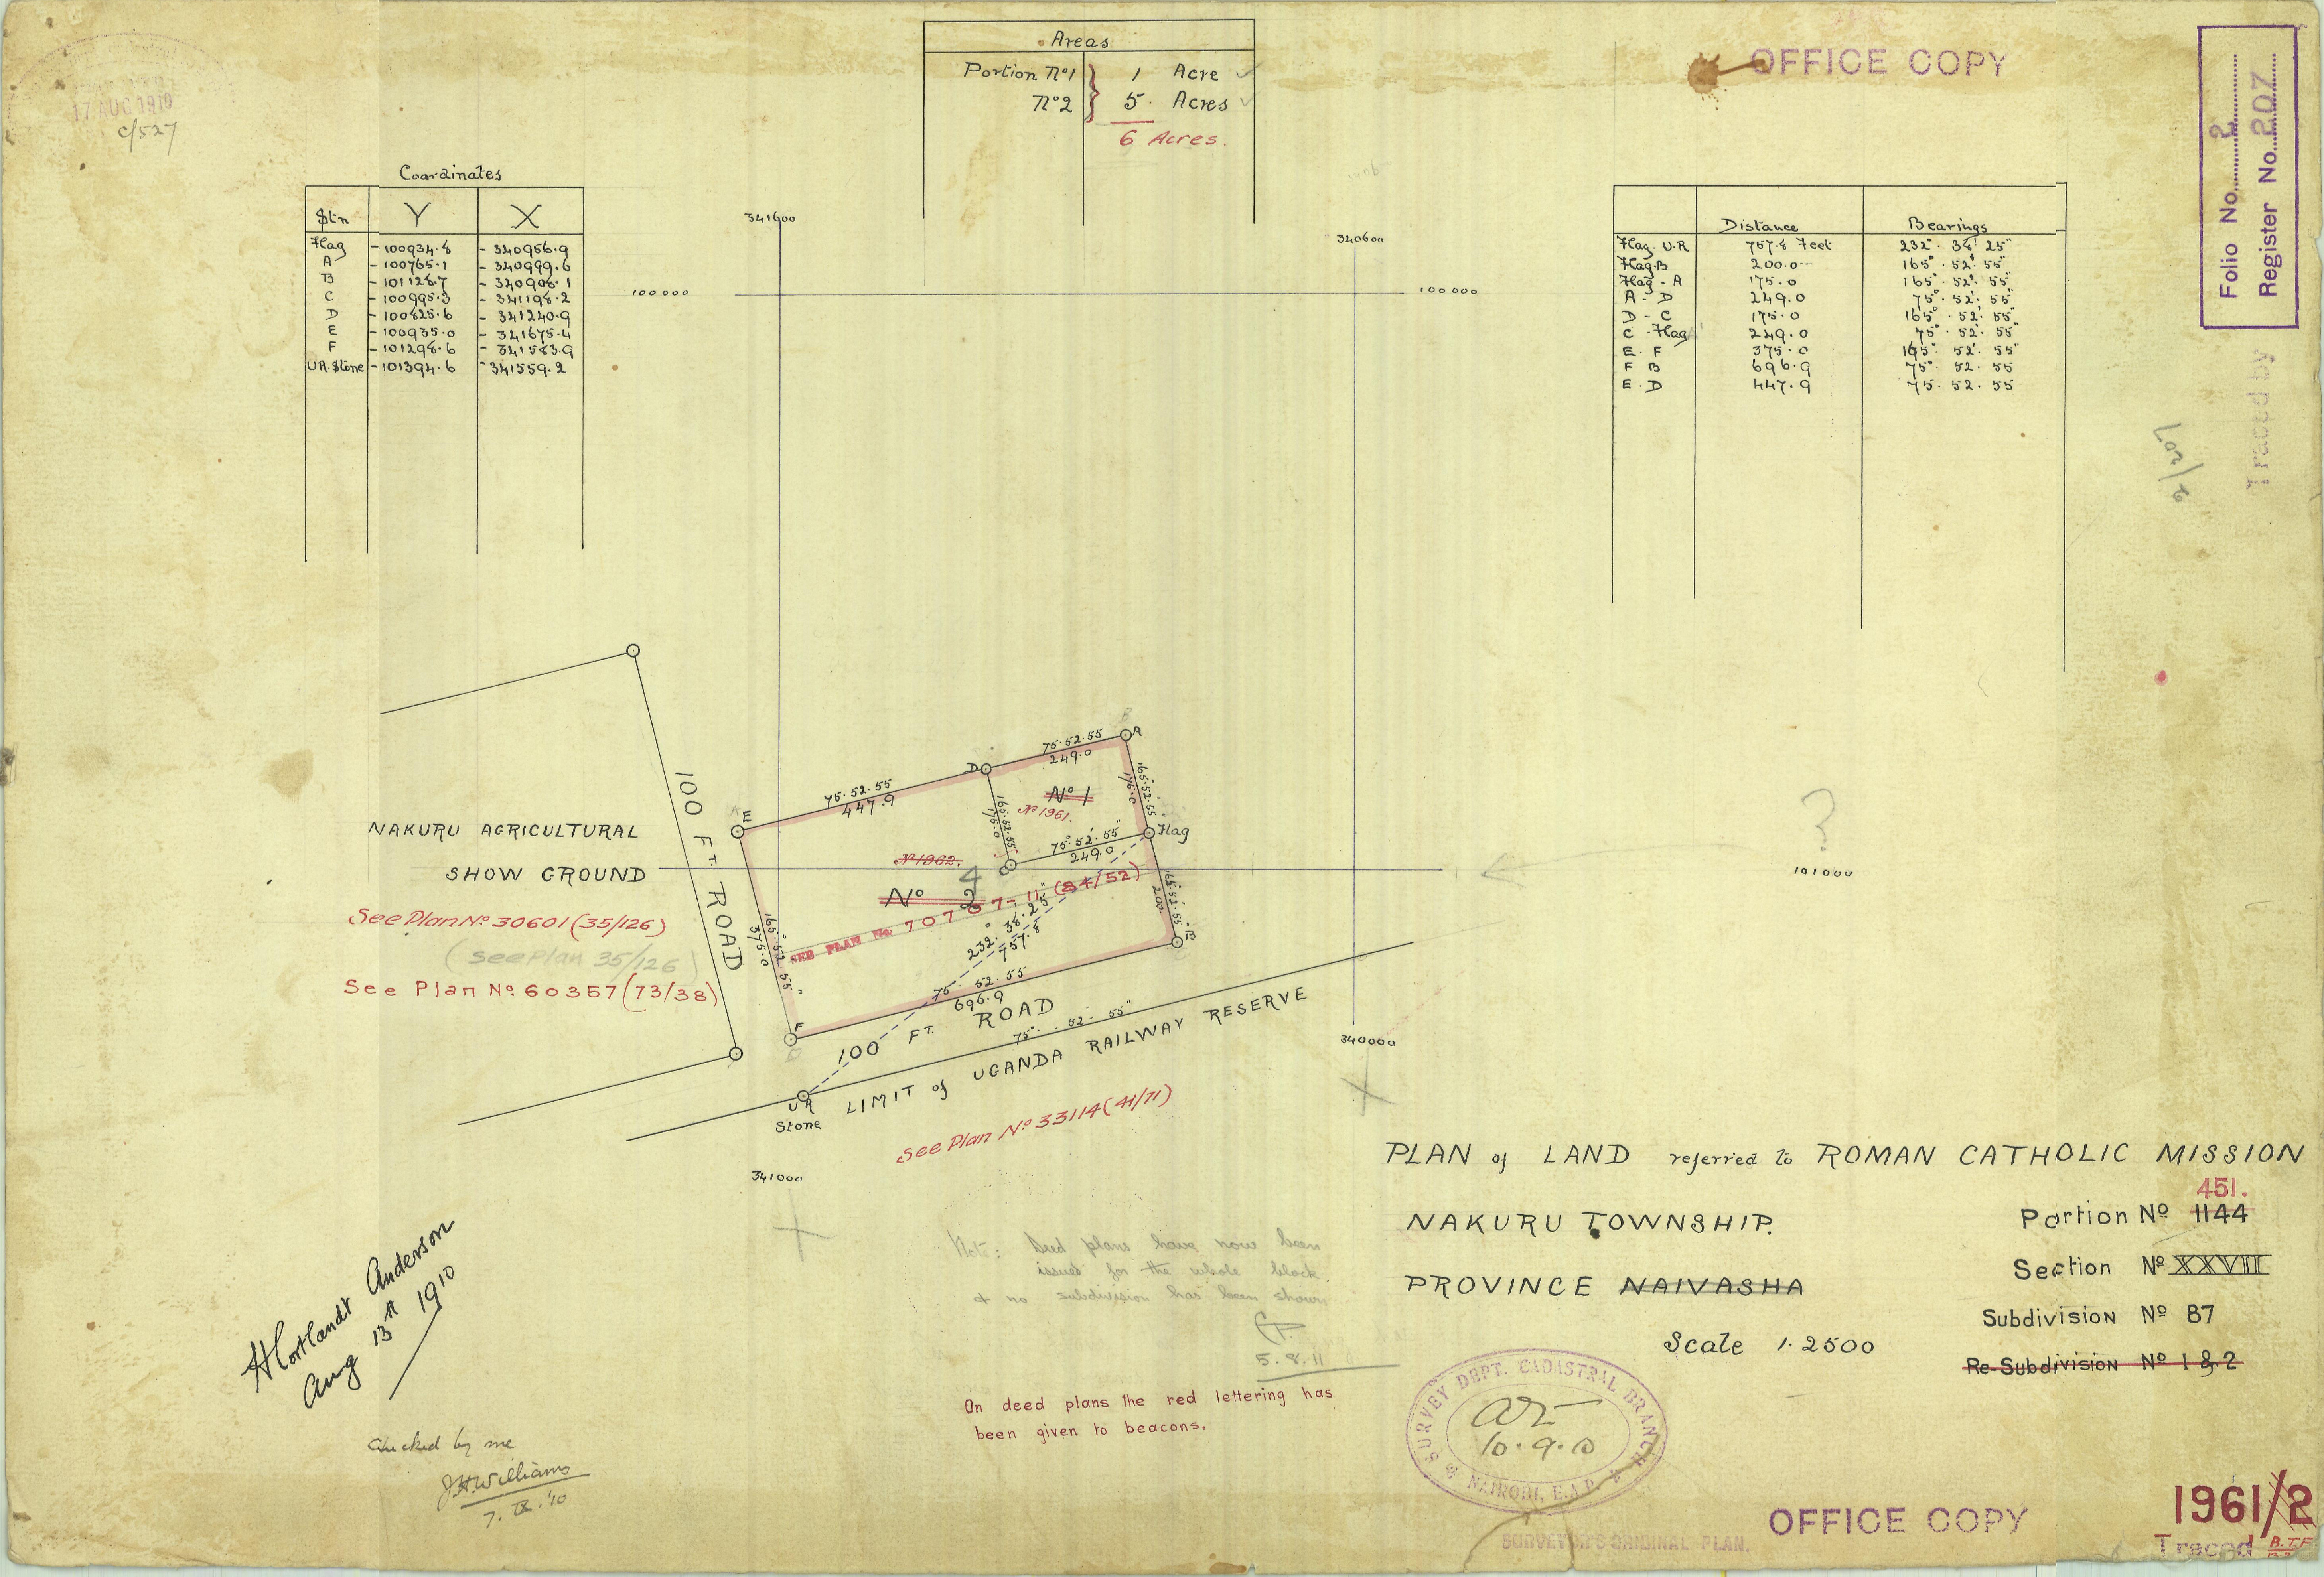 Areas
Portion No 1 } 1 Acre
No 2 } 5 Acres
6 Acres.
OFFICE COPY
Folio No. 2
Register No. 207
17 AUG 1910
C/527
Coordinates
Stn Y X
Flag - 100934.8 - 340956.9
A - 100765.1 - 340999.6
B - 101128.7 - 340908.1
C - 100995.3 - 341198.2
D - 100825.6 - 341240.9
E - 100935.0 - 341675.4
F - 101298.6 - 341583.9
U.R. Stone - 101394.6 - 341559.2
Distance Bearings
Flag. U.R 757.8 Feet 232° 38' 25"
Flag. B 200.0 165° 52' 55"
Flag - A 175.0 165° 52' 55"
A - D 249.0 75° 52' 55"
D - C 175.0 165° 52' 55"
C - Flag 249.0 75° 52' 55"
E. F 375.0 165° 52' 55"
F B 696.9 75° 52' 55
E. D 447.9 75. 52. 55
Traced by
341600
340600
100000
100000
A
B
75.52.55
249.0
D
165°.52'.55"
175.0
No 1
No 1961.
165°.52'.55"
175.0
75.52.55
447.9
E
A
100 FT. ROAD
NAKURU AGRICULTURAL
SHOW GROUND
75°.52'.55"
249.0
Flag
C
No 1962.
4
No 2
SEE PLAN No. 70767-11 (84/52)
101000
?
See Plan No. 30601 (35/126)
(see Plan 35/126)
See Plan No. 60357 (73/38)
165°.52'.55"
375.0
232°.38'.25"
757.8
165°.52'.55"
200.
B
75. 52. 55
696.9
F
D
100 FT. ROAD
75°. 52'. 55"
LIMIT of UGANDA RAILWAY RESERVE
UR
Stone
340000
See Plan No. 33114 (41/71)
341000
PLAN of LAND referred to ROMAN CATHOLIC MISSION
NAKURU TOWNSHIP.
PROVINCE NAIVASHA
Scale 1.2500
451.
Portion No 1144
Section No XXVII
Subdivision No 87
Re-Subdivision No 1 & 2
Note: Deed plans have now been
issued for the whole block
& no subdivision has been shown
5.8.11
On deed plans the red lettering has
been given to beacons.
H Cortlandt Anderson
Aug 13th 1910
Checked by me
J.H. Williams
7. IX. '10
SURVEY DEPT. CADASTRAL BRANCH
10.9.10
NAIROBI, E.A.P.
SURVEYOR'S ORIGINAL PLAN.
OFFICE COPY
1961/2
Traced B.T.F